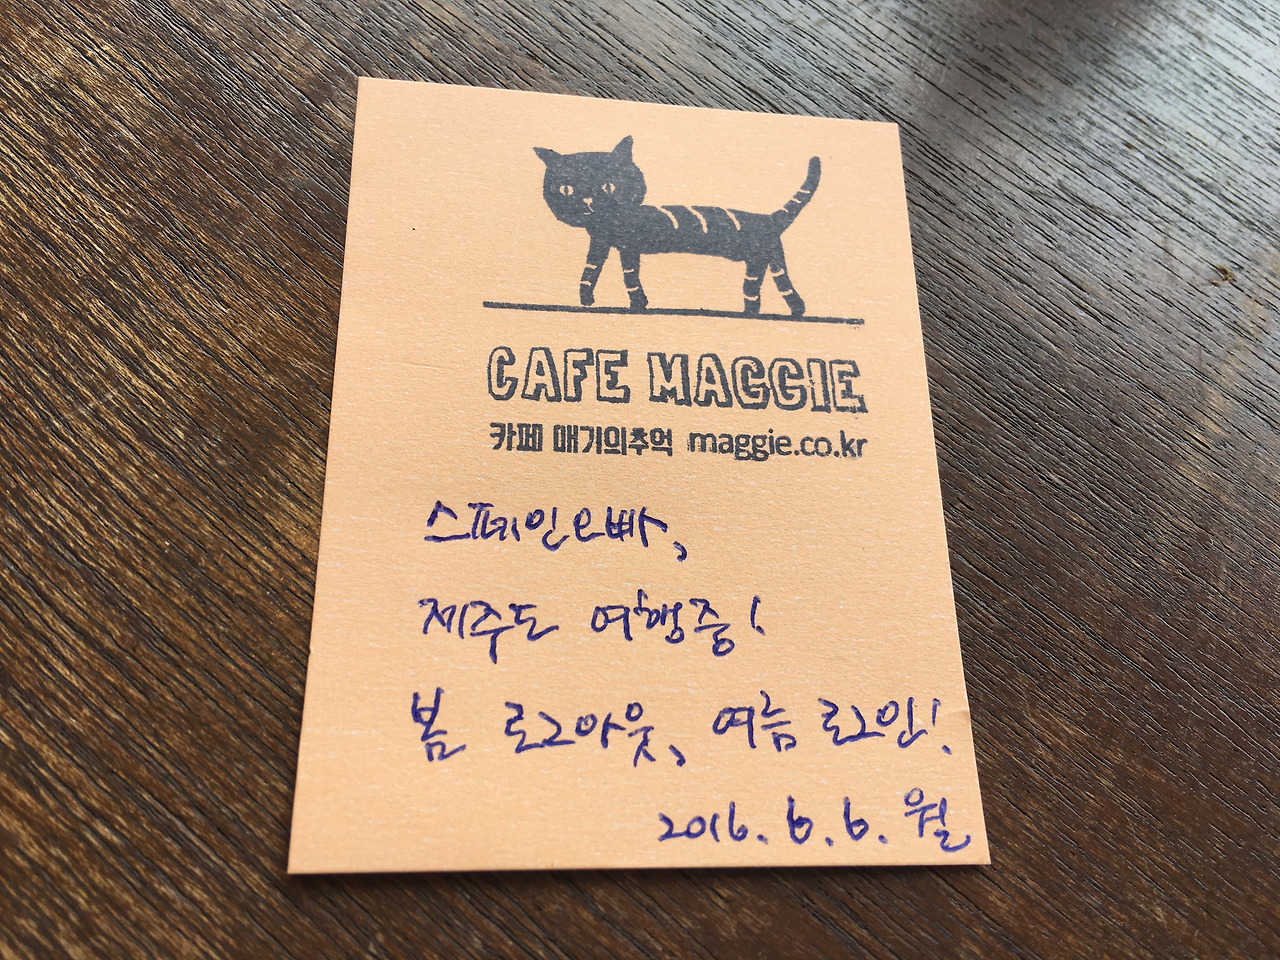 CAFE MAGGIE
카페 매기의추억 maggie.co.kr
스페인오빠,
제주도 여행중!
봄 로그아웃, 여름 로그인!
2016. 6. 6. 월